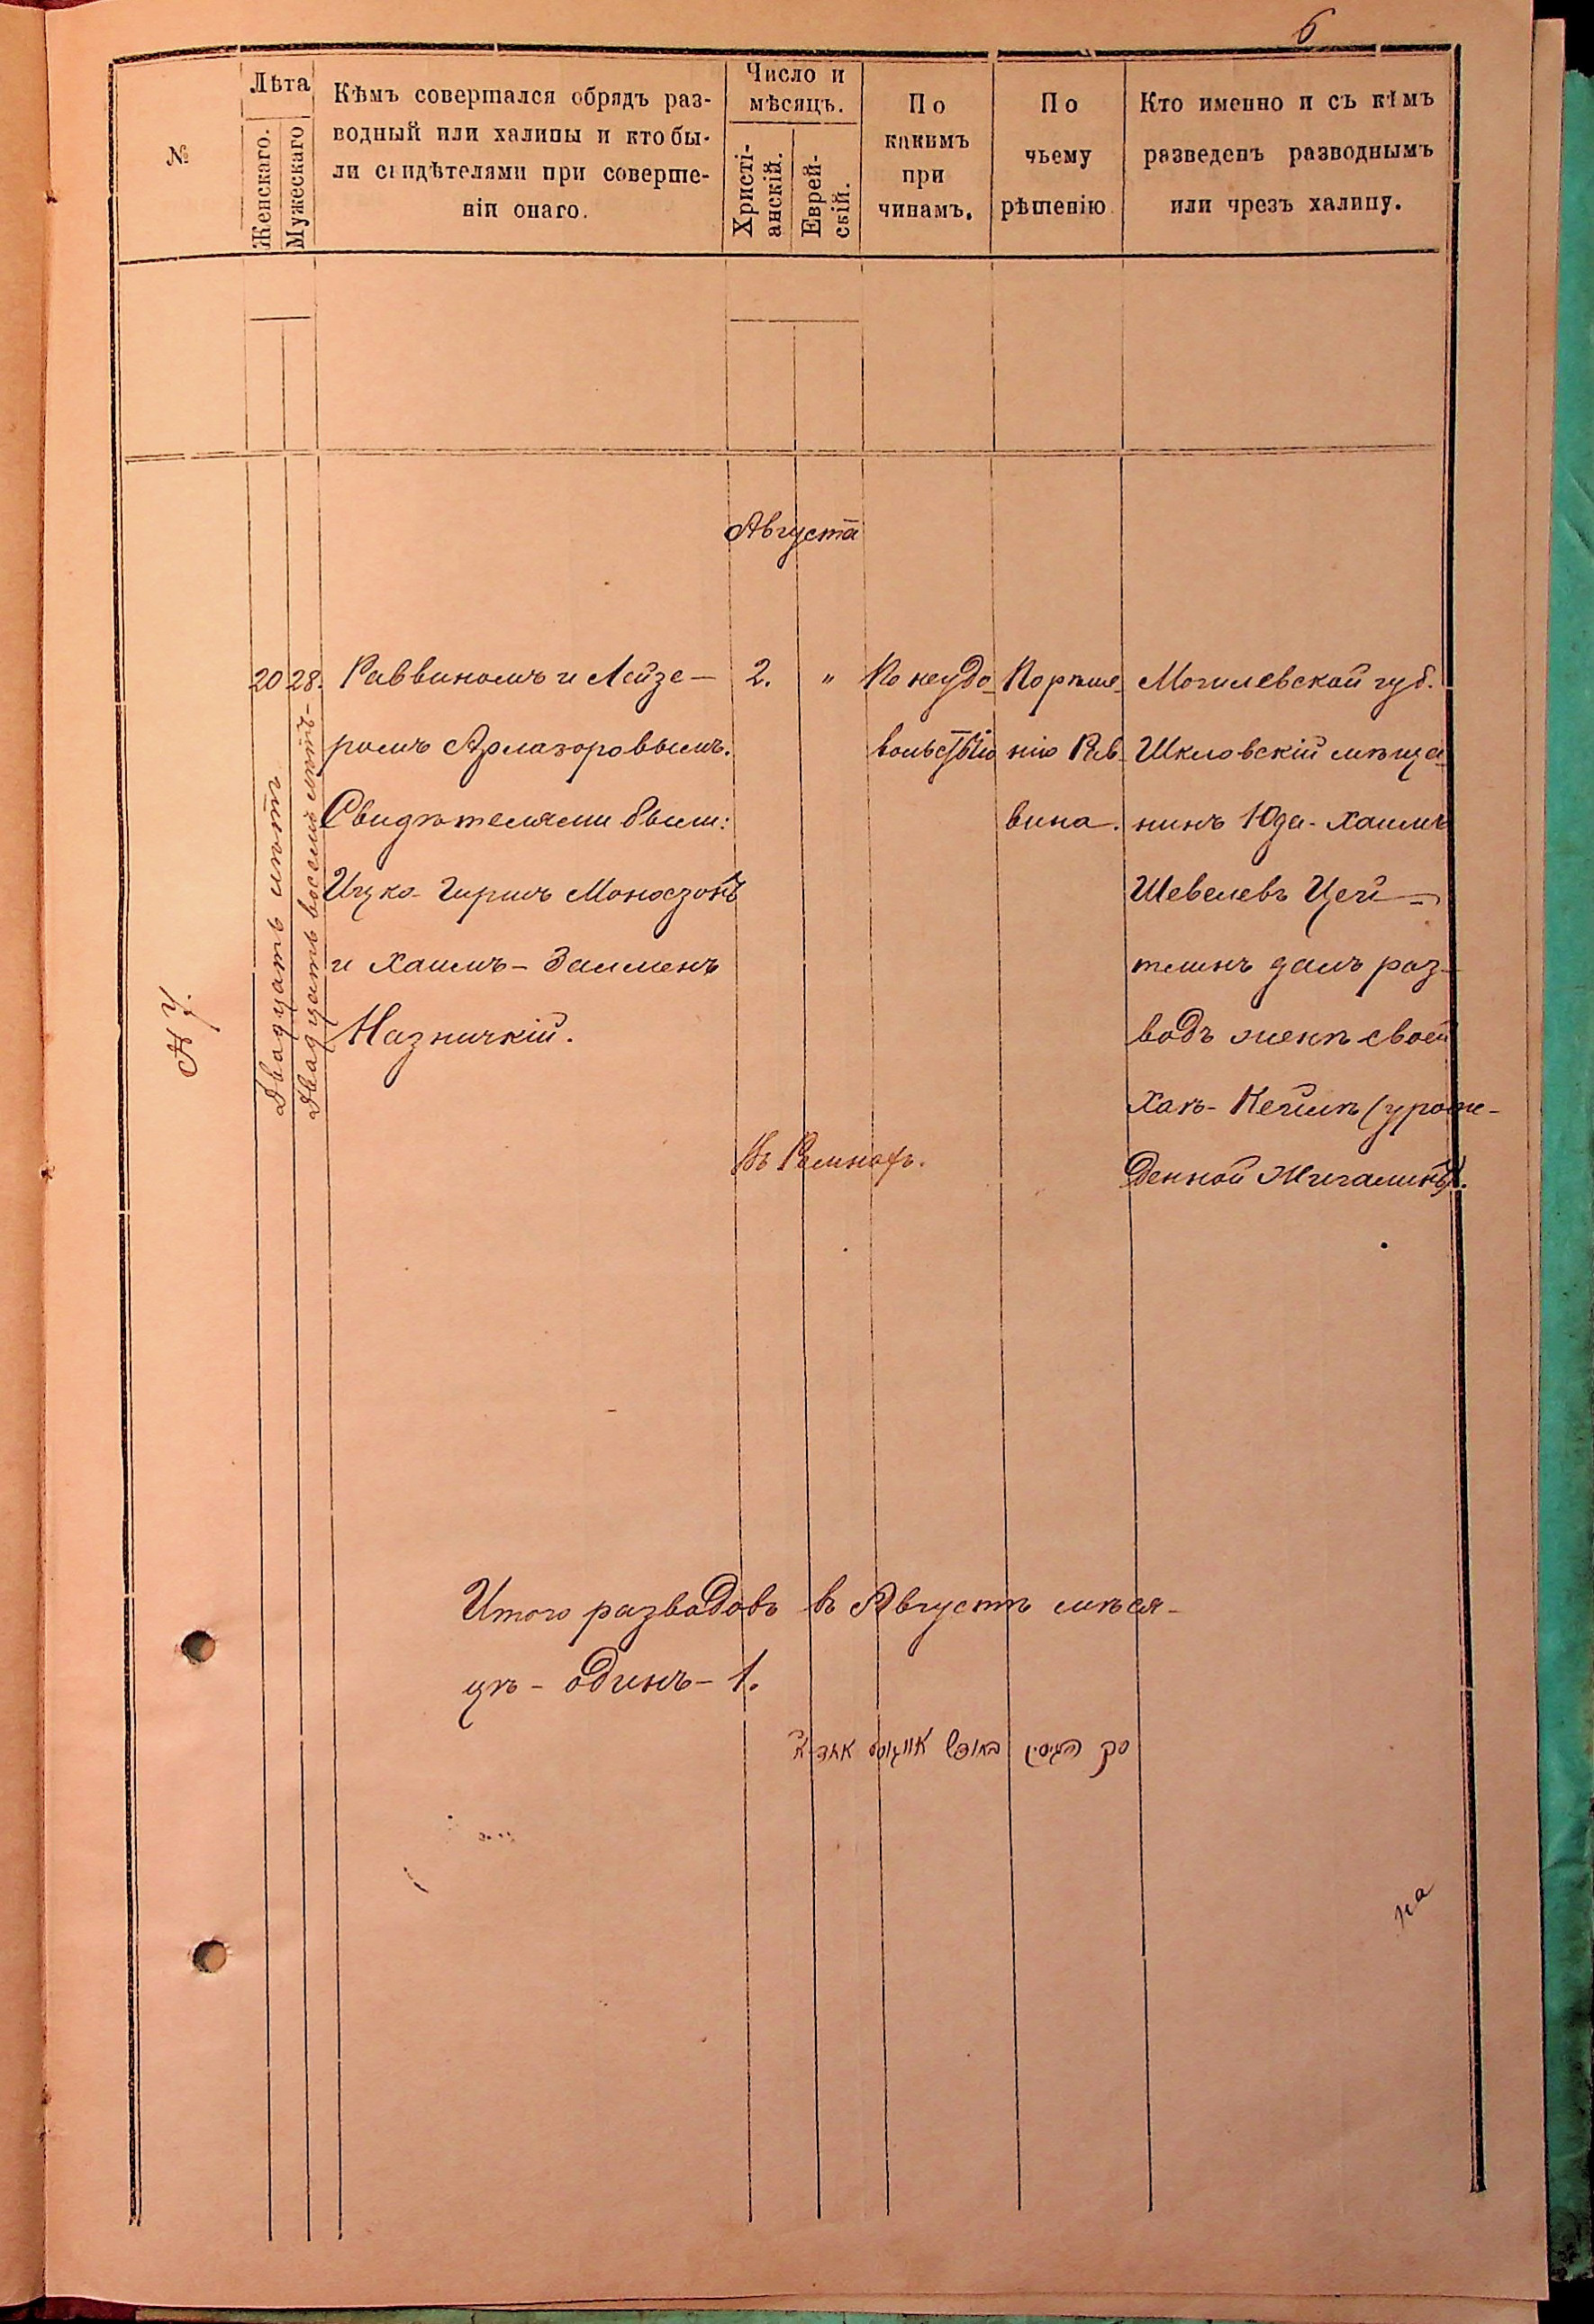 6
№
Лѣта
Женскаго.
Мужескаго
Кѣмъ совершался обрядъ раз-
водный или халицы и кто бы-
ли свидѣтелями при соверше-
ніи онаго.
Число и
мѣсяцъ.
Христі-
анскій.
Еврей-
скій.
По
какимъ
при
чинамъ.
По
чьему
рѣшенію
Кто именно и съ кѣмъ
разведенъ разводнымъ
или чрезъ халицу.
Августа
20
Двадцать лѣтъ
28.
Двадцать восемь лѣтъ-
Раввиномъ и Лейзе-
ромъ Арлазоровымъ.
Свидѣтелями были:
Ицко-Гиршъ Моносзонъ
и Хаимъ-Залменъ
2.
"
По неудо-
вольствію
По рѣше-
нію Рав-
вина.
Могилевской губ.
Шкловскій мѣща-
нинъ Юда-Хаимъ
Шевелевъ Цей-
тлинъ далъ раз-
водъ женѣ своей
Хаѣ-Кейлѣ (урож-
денной
Итого разводовъ въ Августѣ мѣся-
цѣ - одинъ - 1.
на